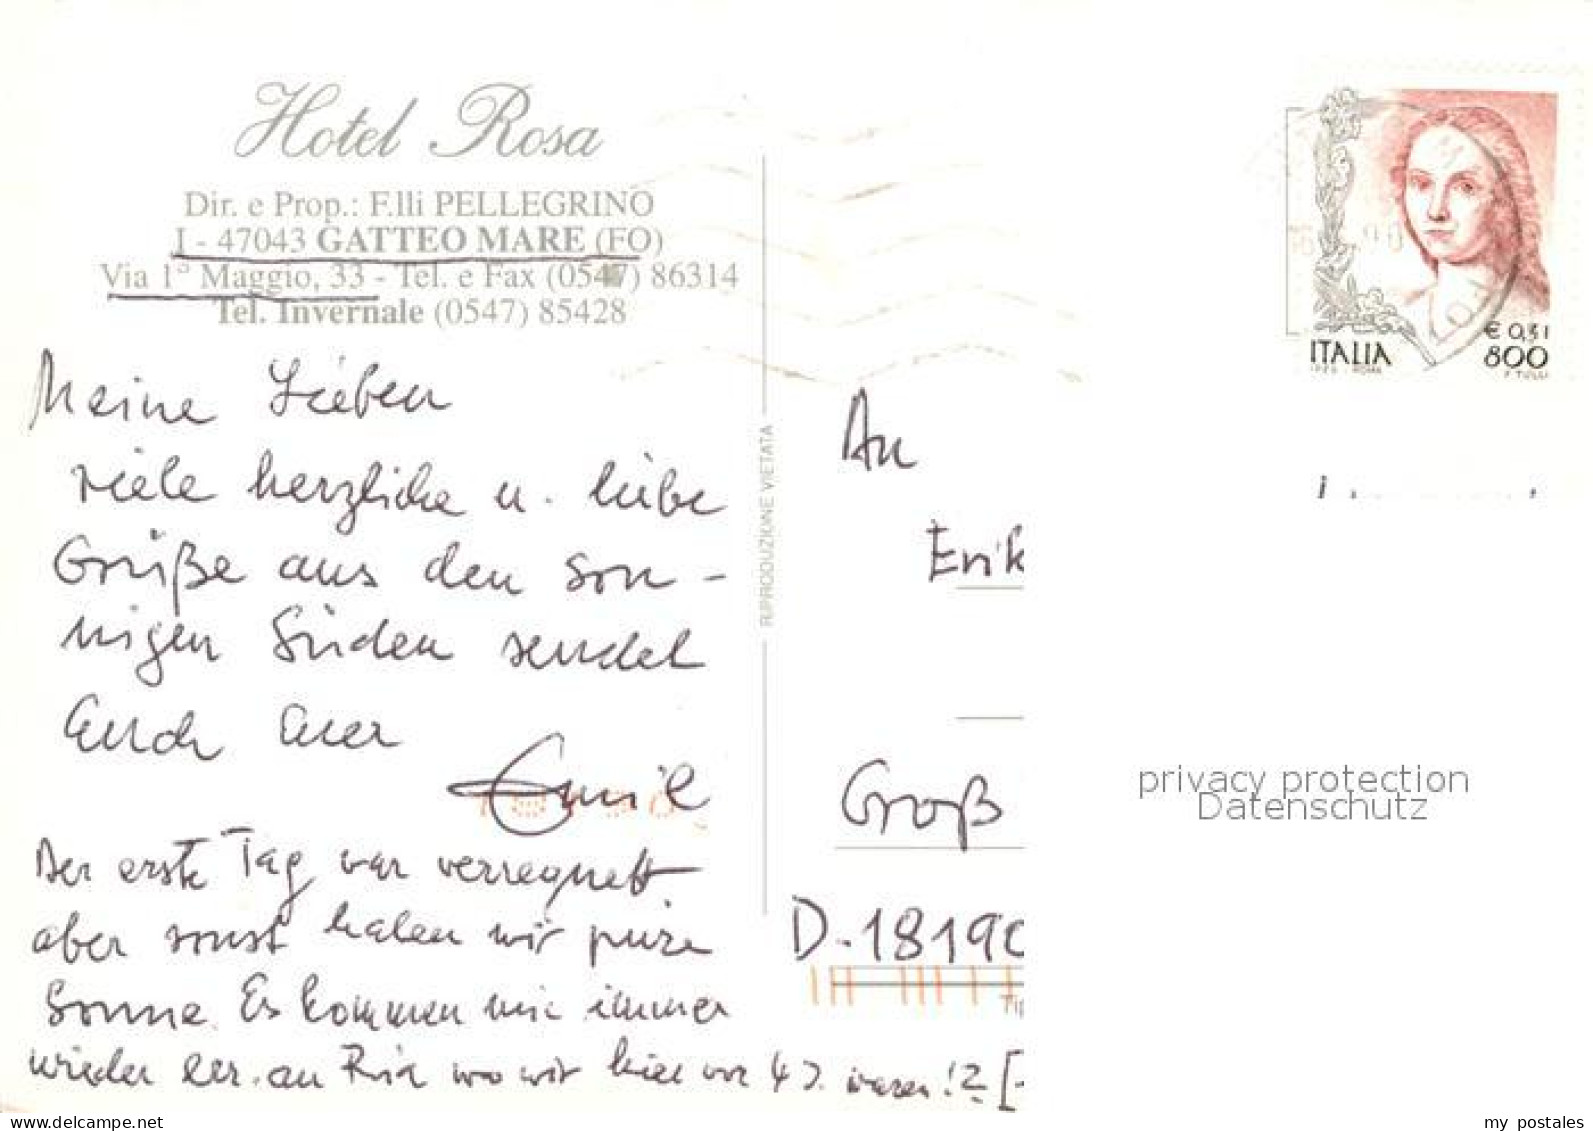 Hotel Rosa
Dir. e Prop.: F.lli PELLEGRINO
I - 47043 GATTEO MARE (FO)
Via 1° Maggio, 33 - Tel. e Fax (0547) 86314
Tel. Invernale (0547) 85428
Meine Lieben
viele herzliche u. liebe
Grüße aus den son-
nigen Süden sendet
Euch Euer
Emil
Der erste Tag war verregnett
aber sonst haben wir pure
Sonne. Es kommen mir immer
wieder Er. an Ria wo wir hier vor 4 J. waren!?
RIPRODUZIONE VIETATA
€ 0,41
ITALIA 800
I.P.Z.S. - ROMA F. TULLI
An
Erik
Groß
D-18190
privacy protection
Datenschutz
my postales